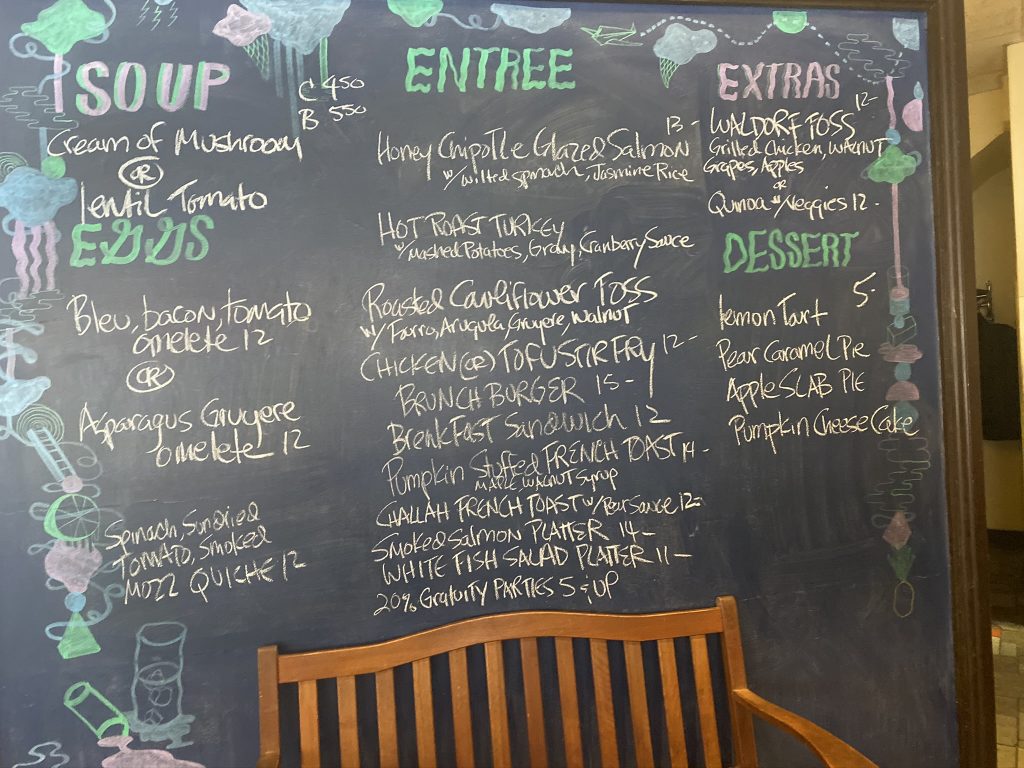 SOUP
C 450
B 550
Cream of Mushroom
OR
lentil Tomato
EGGS
Bleu, bacon, tomato
omelete 12
OR
Asparagus Gruyere
omelete 12
Spinach, Sundried
TOMATO, Smoked
MOZZ QUICHE 12
ENTREE
Honey Chipotle Glazed Salmon 13-
w/ wilted spinach, Jasmine Rice
HOT ROAST TURKEY
w/ Mashed Potatoes, Gravy, Cranbary Sauce
Roasted Cauliflower TOSS
w/ Farro, Arugula, Gruyere, Walnut
CHICKEN (OR) TOFU STIR FRY 12-
BRUNCH BURGER 15-
BreakFast Sandwich 12
Pumpkin Stuffed FRENCH TOAST 14-
MAPLE WALNUT Syrup
CHALLAH FRENCH TOAST w/ Pear Sauce 12-
Smoked Salmon PLATTER 14-
WHITE FISH SALAD PLATTER 11-
20% Gratuity PARTIES 5 & UP
EXTRAS
WALDORF TOSS 12-
Grilled Chicken, WALNUT
Grapes, Apples
OR
Quinoa w/ Veggies 12-
DESSERT
5-
lemon Tart
Pear Caramel Pie
Apple SLAB PIE
Pumpkin Cheese Cake